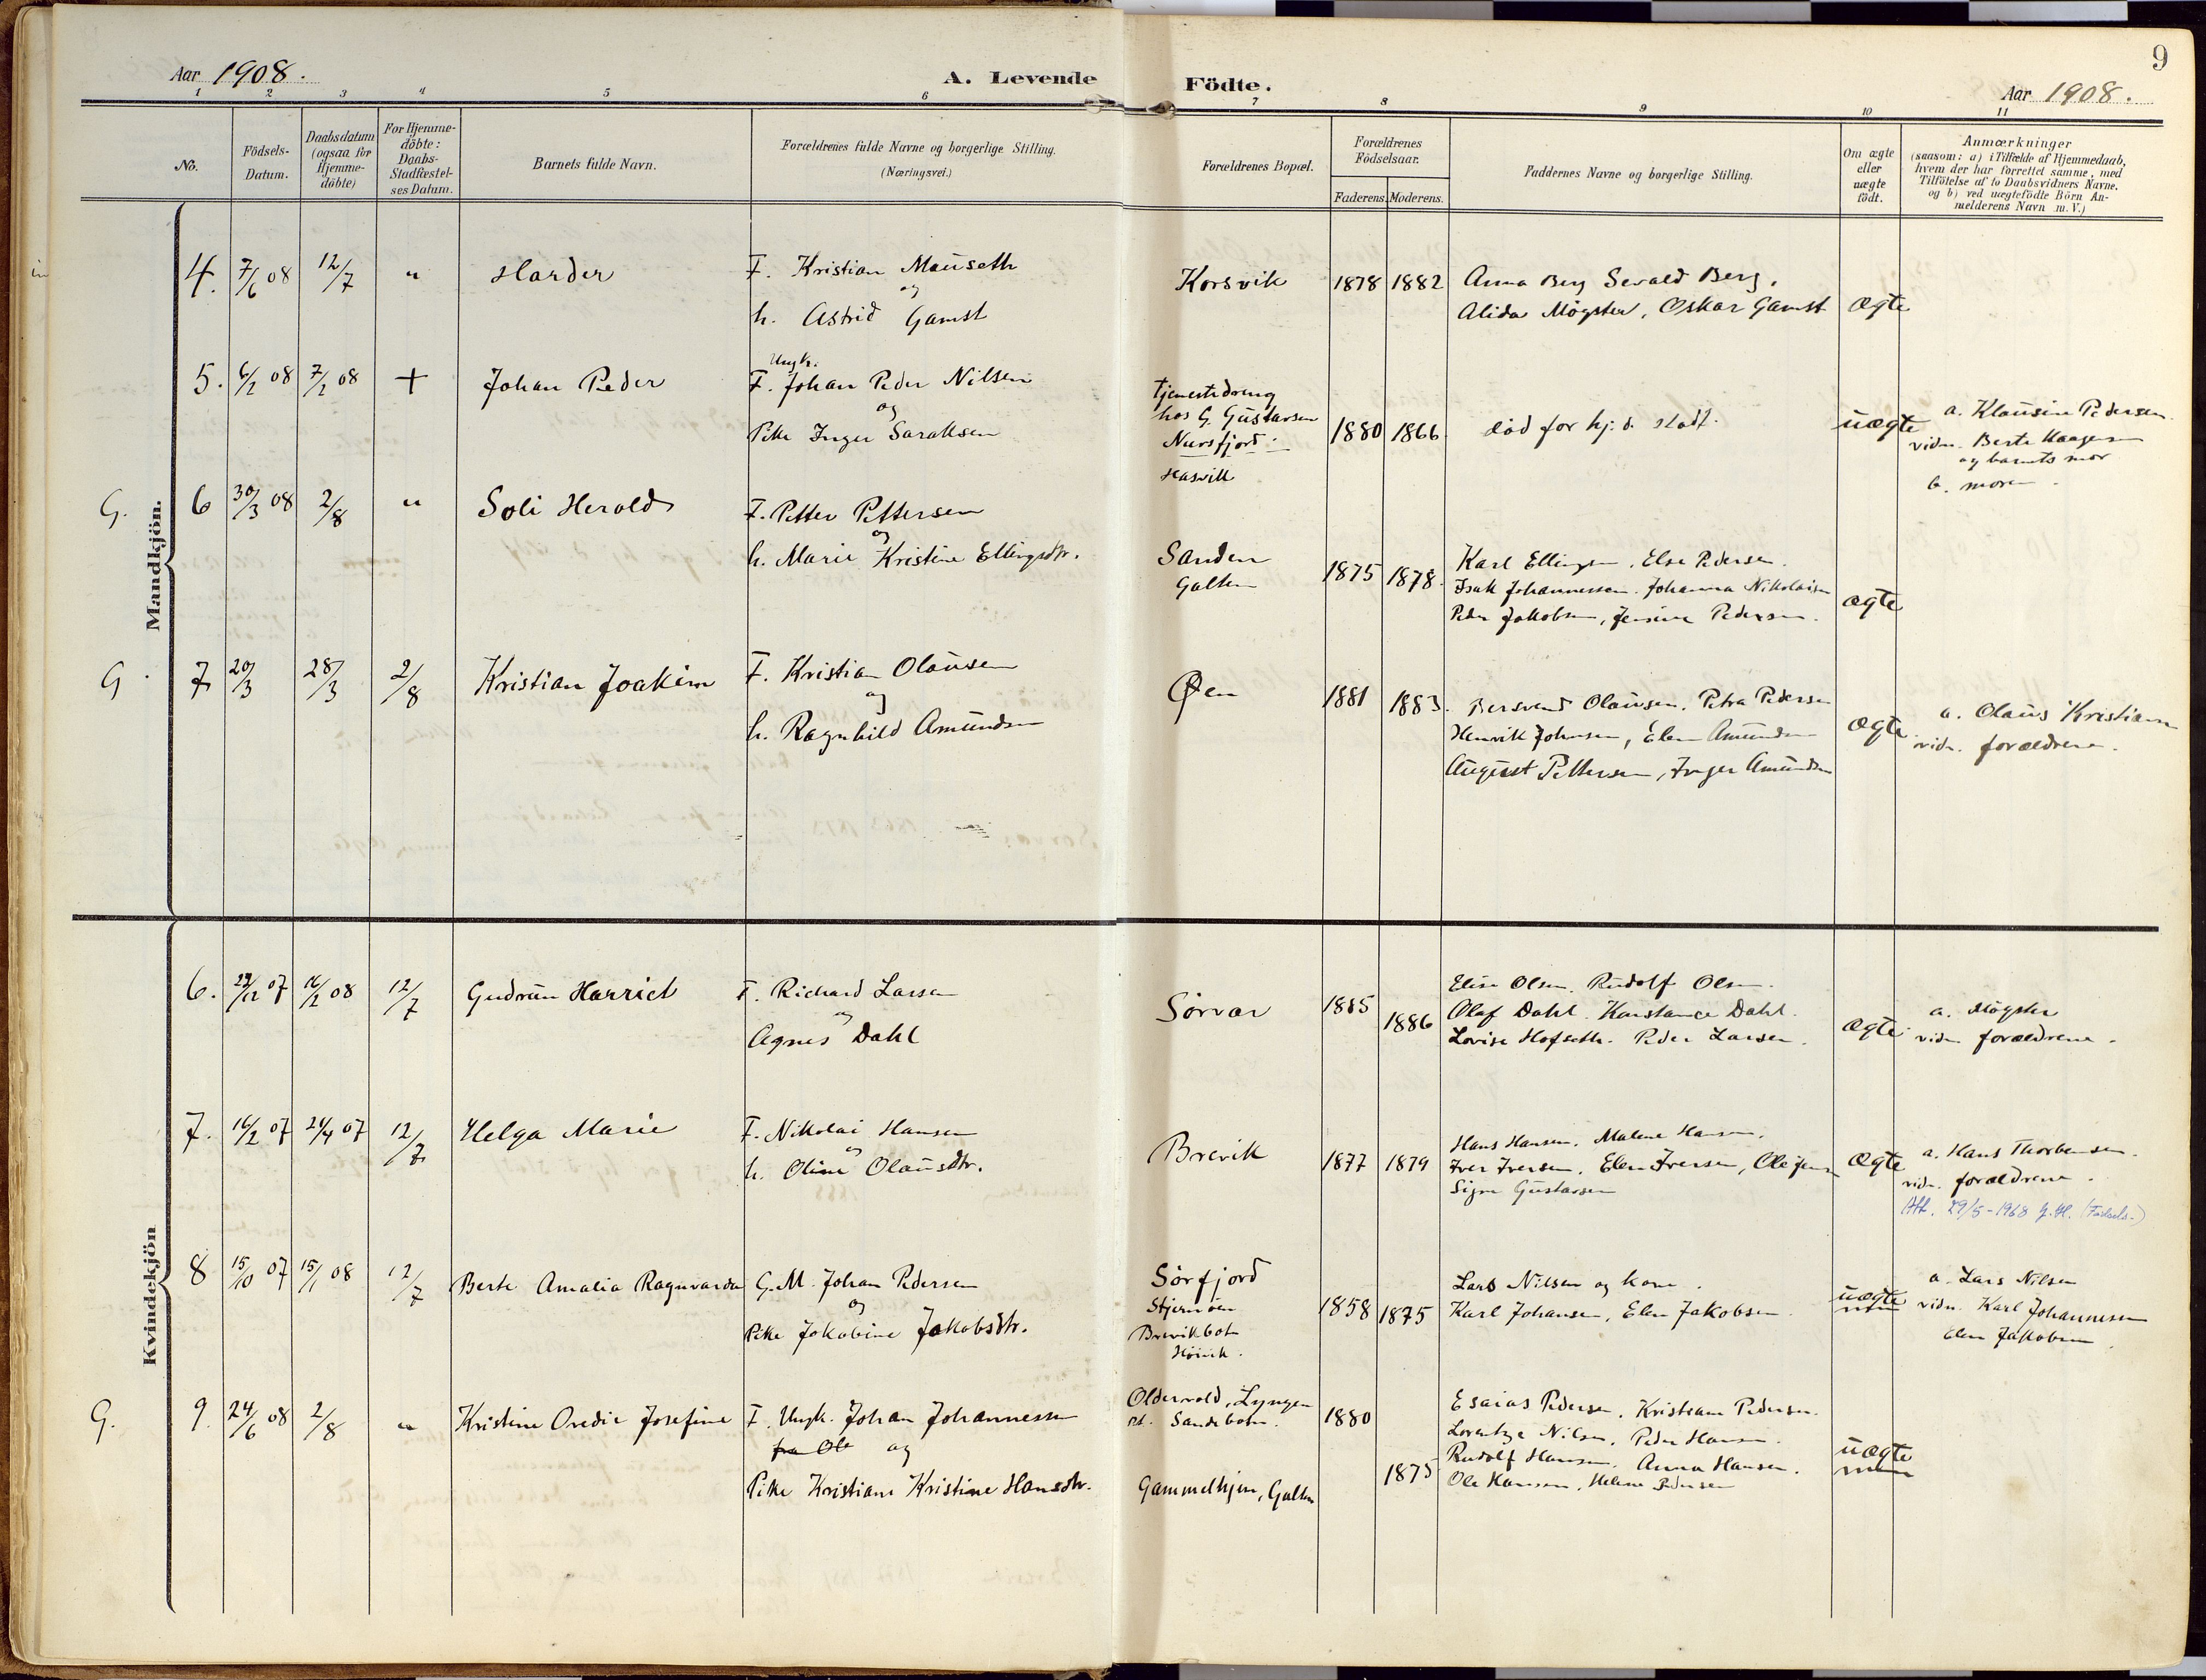 9
Aar 1908. A. Levende Födte. Aar 1908.
1 2 3 4 5 6 7 8 9 10 11
No.
Födsels-
Datum.
Daabsdatum
(ogsaa for
Hjemme-
döbte)
For Hjemme-
döbte:
Daabs-
Stadfæstel-
ses Datum.
Barnets fulde Navn.
Forældrenes fulde Navne og borgerlige Stilling.
(Næringsvei.)
Forældrenes Bopæl.
Forældrenes
Födselsaar.
Faderens. Moderens.
Faddernes Navne og borgerlige Stilling.
Om ægte
eller
uægte
födt.
Anmærkninger
(saasom: a) i Tilfælde af Hjemmedaab,
hvem der har forrettet samme, med
Tilföielse af to Daabsvidners Navne.
og b) ved uægtefödte Börn An-
melderens Navn m. V.)
Mandkjön.
4. 7/6 08 12/7 " Harder
F. Kristian Mauseth
og
h. Astrid Gamst
Korsvik 1878 1882
Anna Berg Sevald Berg.
Alida Mögster, Oskar Gamst
ægte
5. 6/2 08 7/2 08 + Johan Peder
Ungk.
F. Johan Peder Nilsen
og
Pike Inger Saraksen
Tjenestedreng
hos G. Gustavsen
Nursfjord
Hasvik
1880 1866
död for hj. d. stadf.
uægte
a. Klausine Pedersen
vidn. Berte Haagensen
og barnets mor
b. moren.
G. 6 30/3 08 2/8 " Soli Herold
F. Petter Pettersen
og
h. Marie Kristine Ellingsdtr.
Sanden
Galten
1875 1878.
Karl Ellingsen, Else Pedersen.
Isak Johannessen. Johanna Nikolaisen
Peder Jakobsen, Jensine Pedersen.
ægte
G. 7 20/3 28/3 2/8 Kristian Joakim
F. Kristian Olausen
og
h. Ragnhild Amundsen
Øen 1881 1883.
Bersvend Olausen, Petra Pedersen
Henrik Johnsen, Elen Amundsen
August Pettersen, Inger Amundsen
ægte
a. Olaus Kristiansen
vidn. forældrene.
Kvindekjön
6. 27/12 07 16/2 08 12/7 Gudrun Harriet
F. Richard Larsen
og
Agnes Dahl
Sörvær 1885 1886
Elise Olsen. Rudolf Olsen.
Olaf Dahl. Konstance Dahl.
Lovise Hofseth. Peder Larsen.
ægte
a. Mögster
vidn forældrene.
7. 16/2 07 21/4 07 12/7 Helga Marie
F. Nikolai Hansen
og
h. Oline Olausdtr.
Brevik 1877 1879
Hans Hansen. Malene Hansen.
Iver Iversen, Elen Iversen, Ole Jensen
Signe Gustavsen
ægte
a. Hans Thorbensen.
vidn. forældrene.
Att. 29/5-1968 (Födsels-)
8 15/10 07 15/1 08 12/7 Berte Amalia Ragnvarda
G.M. Johan Pedersen
og
Pike Jakobine Jakobsdtr.
Sörfjord
Stjernöen
Brevikbotn
Höivik.
1858 1875
Lars Nilsen og kone.
Karl Johansen, Elen Jakobsen
uægte
a. Lars Nilsen
vidn. Karl Johannesen
Elen Jakobsen.
G. 9. 24/6 08 2/8 " Kristine Ovedie Josefine
F. Ungk. Johan Johannessen
fra Ol og
Pike Kristiane Kristine Hansdtr.
Oldervold, Lyngen
Sandebotn.
Gammelhjem, Galten
1880 1875
Esaias Pedersen, Kristiane Pedersen.
Lorentze Nilsen, Peder Hansen.
Rudolf Hansen. Anna Hansen.
Ole Hansen, Helene Pedersen
uægte